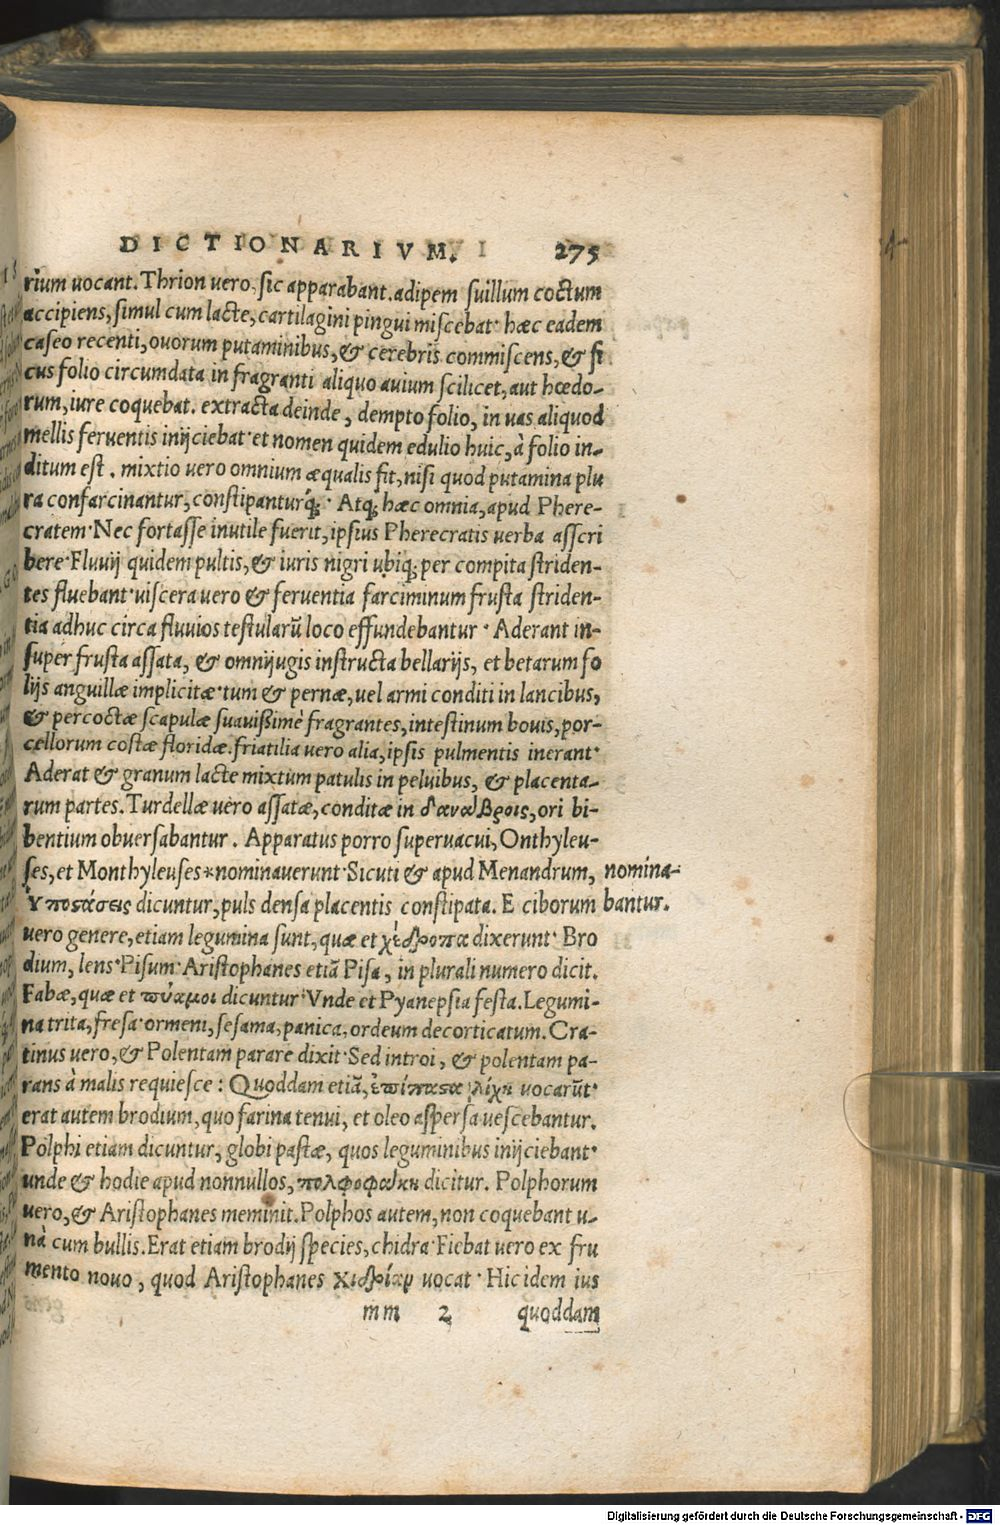 DICTIONARIVM. 275
rium uocant. Thrion uero, sic apparabant. adipem suillum coctum
accipiens, simul cum lacte, cartilagini pingui miscebat· hæc eadem
caseo recenti, ouorum putaminibus, & cerebris commiscens, & fi
cus folio circumdata in fragranti aliquo auium scilicet, aut hœdo-
rum, iure coquebat. extracta deinde, dempto folio, in uas aliquod
mellis feruentis inijciebat· et nomen quidem edulio huic, à folio in-
ditum est. mixtio uero omnium æqualis fit, nisi quod putamina plu
ra confarcinantur, constipanturq́;· Atq; hæc omnia, apud Phere-
cratem· Nec fortasse inutile fuerit, ipsius Pherecratis uerba asscri
bere· Fluuij quidem pultis, & iuris nigri ubiq; per compita striden-
tes fluebant· uiscera uero & feruentia farciminum frusta striden-
tia adhuc circa fluuios testularũ loco effundebantur· Aderant in-
super frusta assata, & omnijugis instructa bellarijs, et betarum fo
lijs anguillæ implicitæ· tum & pernæ, uel armi conditi in lancibus,
& percoctæ scapulæ suauißimè fragrantes, intestinum bouis, por-
cellorum costæ floridæ. friatilia uero alia, ipsis pulmentis inerant·
Aderat & granum lacte mixtum patulis in peluibus, & placenta-
rum partes. Turdellæ uero assatæ, conditæ in ori bi-
bentium obuersabantur. Apparatus porro superuacui, Onthyleu-
ses, et Monthyleuses*nominauerunt· Sicuti & apud Menandrum, nomina-
Ὑποστάσεις dicuntur, puls densa placentis constipata. E ciborum bantur.
uero genere, etiam legumina sunt, quæ et χέδροπα dixerunt· Bro
dium, lens· Pisum· Aristophanes etiã Pisa, in plurali numero dicit.
Fabæ, quæ et πύαμοι dicuntur· Vnde et Pyanepsia festa. Legumi-
na trita, fresa· ormeni, sesama, panica, ordeum decorticatum. Cra-
tinus uero, & Polentam parare dixit· Sed introi, & polentam pa-
rans à malis requiesce: Quoddam etiã, ἐπίπαστα λίχη uocarũt·
erat autem brodium, quo farina tenui, et oleo aspersa uescebantur.
Polphi etiam dicuntur, globi pastæ, quos leguminibus inijciebant·
unde & hodie apud nonnullos, πολφοφάκη dicitur. Polphorum
uero, & Aristophanes meminit. Polphos autem, non coquebant u-
nà cum bullis. Erat etiam brodij species, chidra· Fiebat uero ex fru
mento nouo, quod Aristophanes χιδρίαν uocat· Hic idem ius
mm 2 quoddam
Digitalisierung gefördert durch die Deutsche Forschungsgemeinschaft - DFG